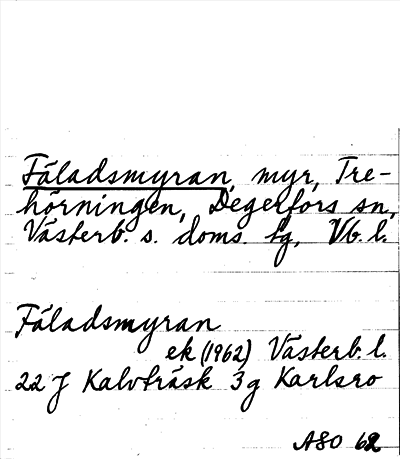 Fäladsmyran, myr, Tre-
hörningen, Degerfors sn,
Västerb. s. doms. tg, Vb. l.
Fäladsmyran
ek (1962) Västerb. l.
22 J Kalvträsk 3 g Karlsro
ASO 62